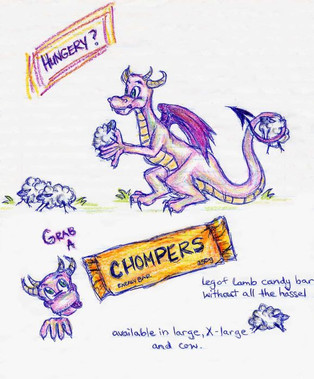 HUNGERY?
GRAB
A
CHOMPERS
ENERGY BAR
250g
Leg of Lamb candy bar
without all the hassel
available in large, X-large
and cow.